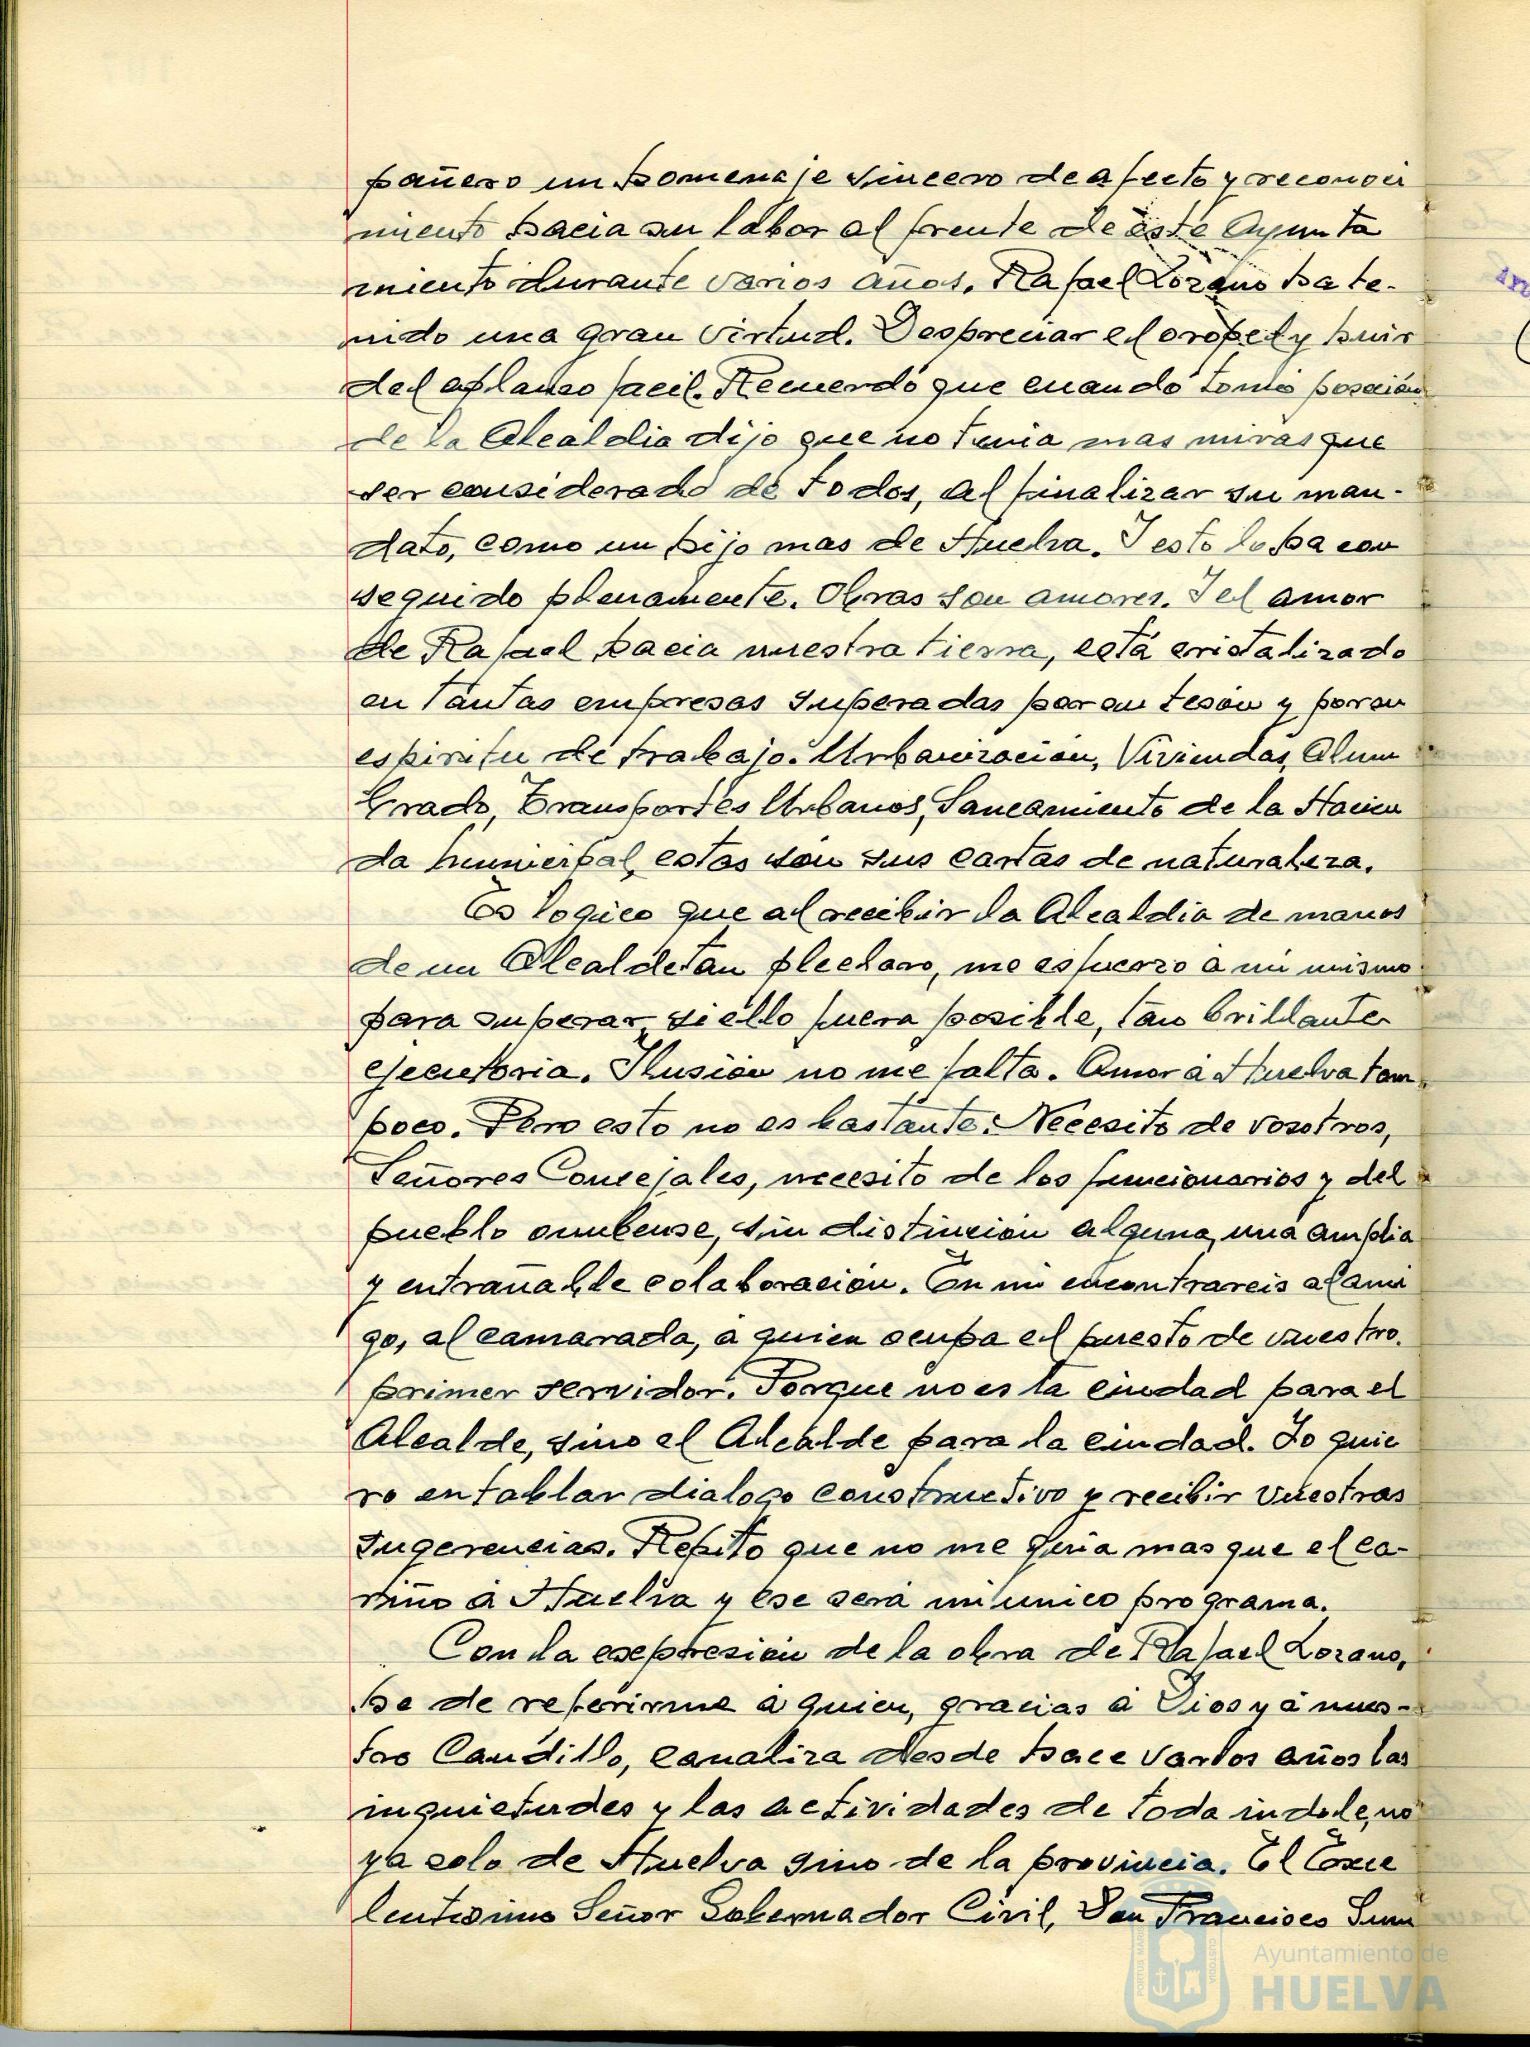 pañero un homenaje sincero de afecto y reconoci
miento hacia su labor al frente de este Ayunta
miento durante varios años. Rafael Lozano ha te-
nido una gran virtud. Despreciar el oropel y huir
del aplauso facil. Recuerdo que cuando tomó posesión
de la Alcaldia dijo que no tenia mas miras que
ser considerado de todos, al finalizar su man-
dato, como un hijo mas de Huelva. I esto lo ha con
seguido plenamente. Obras son amores. I el amor
de Rafael hacia nuestra tierra, está cristalizado
en tantas empresas superadas por su tesón y por su
espiritu de trabajo. Urbanización, Viviendas, Alum
brado, Transportes Urbanos, Saneamiento de la Hacien
da municipal, estas son sus cartas de naturaleza.
Es logico que al recibir la Alcaldia de manos
de un Alcalde tan preclaro, me esfuerzo á mi mismo
para superar, si ello fuera posible, tan brillante
ejecutoria. Ilusión no me falta. Amor á Huelva tam
poco. Pero esto no es bastante. Necesito de vosotros,
Señores Concejales, necesito de los funcionarios y del
pueblo onubense, sin distinción alguna, una amplia
y entrañable colaboración. En mi encontrareis al ami
go, al camarada, á quien ocupa el puesto de vuestro
primer servidor. Porque no es la ciudad para el
Alcalde, sino el Alcalde para la ciudad. Io quie
ro entablar dialogo constructivo y recibir vuestras
sugerencias. Repito que no me guia mas que el ca-
riño á Huelva y ese será mi unico programa.
Con la expresión de la obra de Rafael Lozano,
he de referirme á quien, gracias á Dios y á nues-
tro Caudillo, canaliza desde hace varios años las
inquietudes y las actividades de toda indole, no
ya solo de Huelva sino de la provincia. El Exce
lentisimo Señor Gobernador Civil, Don Francisco Sum
Ayuntamiento de
HUELVA